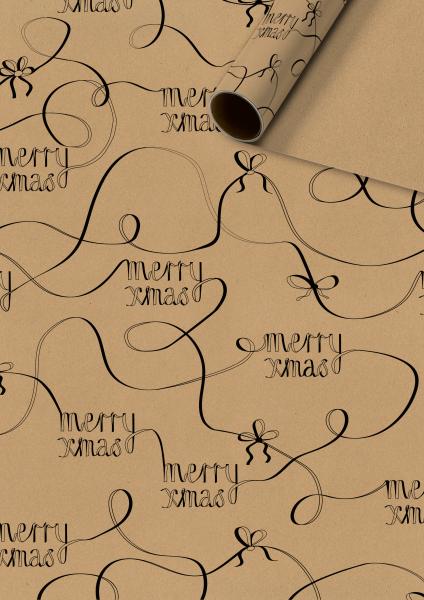 xmas
merry
xmas
merry
xmas
merry
xmas
merry
xmas
merry
xmas
merry
xmas
merry
xmas
me
xm
merry
xmas